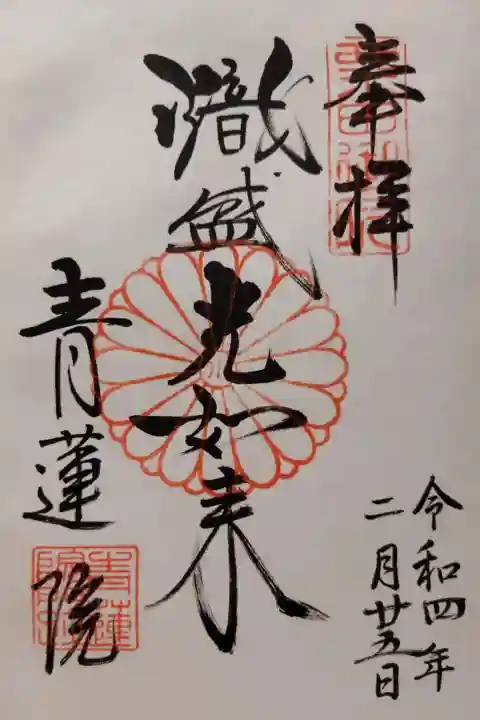 奉拝
熾盛光如来
青蓮院
令和四年
二月廿五日